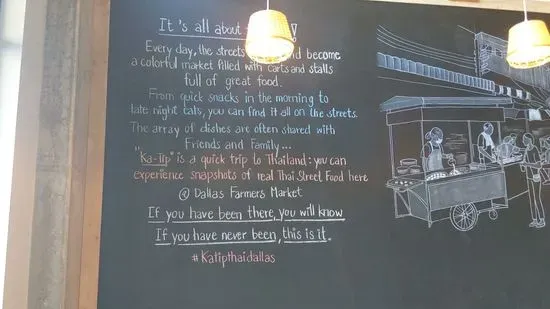 It's all about
Every day, the streets become
a colorful market filled with carts and stalls
full of great food.
From quick snacks in the morning to
late night eats, you can find it all on the streets.
The array of dishes are often shared with
Friends and Family...
"Ka-tip" is a quick trip to Thailand: you can
experience snapshots of real Thai Street Food here
@ Dallas Farmers Market
If you have been there, you will know
If you have never been, this is it.
#Katipthaidallas